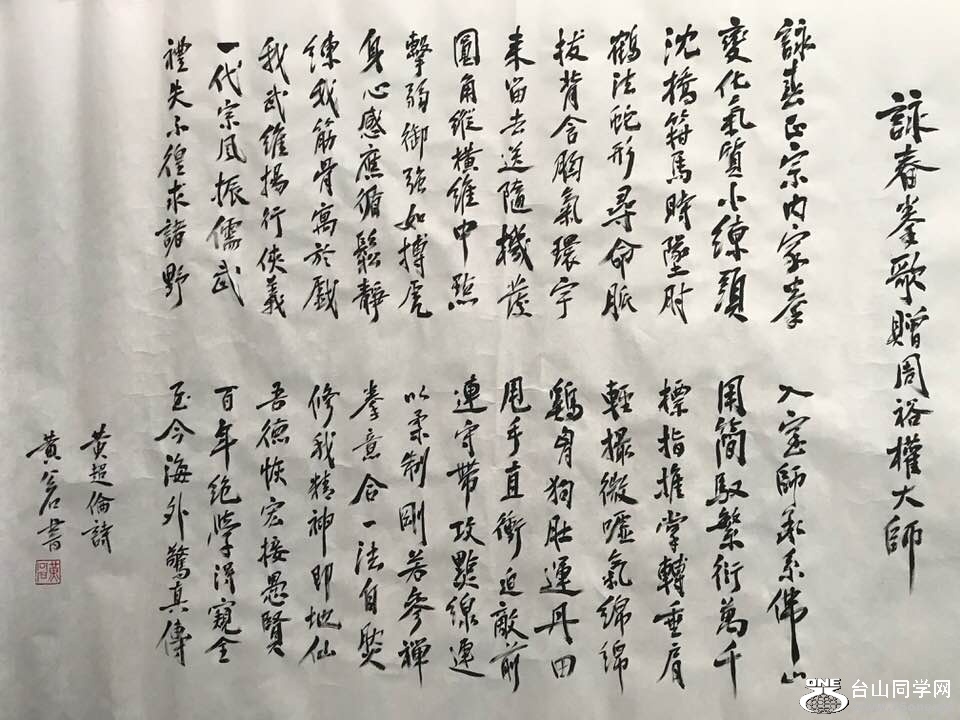 詠春拳歌贈周裕權大師
詠春正宗內家拳 入室師承系佛山
變化氣質小練頭 用簡馭繁衍萬千
沈橋箝馬時墜肘 標指攤掌轉垂肩
鶴法蛇形尋命脈 輕撮微噓氣綿綿
拔背含胸氣環宇 鷄身狗肚運丹田
来留去送隨機發 甩手直衝迫敵前
圓角縱橫維中點 連守帶攻點線連
擊弱御強如搏虎 以柔制剛若參禪
身心感應循鬆靜 拳意合一法自然
練我筋骨寓於戲 修我精神即地仙
我武維揚行俠義 吾德恢宏接愚賢
一代宗風振儒武 百年絕學得窺全
禮失不徨求諸野 至今海外驚真傳
黃超倫詩
黃書
ONE
台山同学网